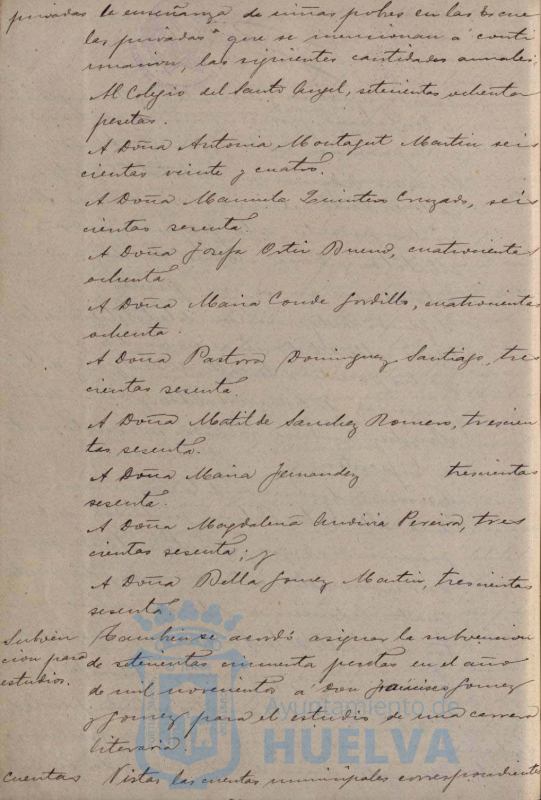 privadas la enseñanza de niñas pobres en las Escue
las privadas que se mencionan á conti
nuacion, las siguientes cantidades anuales:
Al Colegio del Santo Angel, setecientas ochenta
pesetas.
A Doña Antonia Montagut Martin seis
cientas veinte y cuatro.
A Doña Manuela Quintero Cruzado, seis
cientas sesenta.
A Doña Josefa Ortiz Bueno, cuatrocientas
ochenta
A Doña Maria Conde Gordillo, cuatrocientas
ochenta.
A Doña Pastora Dominguez Santiago, tres
cientas sesenta.
A Doña Matilde Sanchez Romero, trescien
tas sesenta.
A Doña Maria Fernandez trescientas
sesenta.
A Doña Magdalena Andivia Pereira, tres
cientas sesenta; y
A Doña Bella Gomez Martin, trescientas
sesenta
Subven
cion para
estudios.
Tambien se acordó asignar la subvencion
de setecientas cincuenta pesetas en el año
de mil novecientos á Don Francisco Gomez
y Gomez para el estudio de una carrera
literaria.
Cuentas
Vistas las cuentas municipales correspondientes
Ayuntamiento de
HUELVA